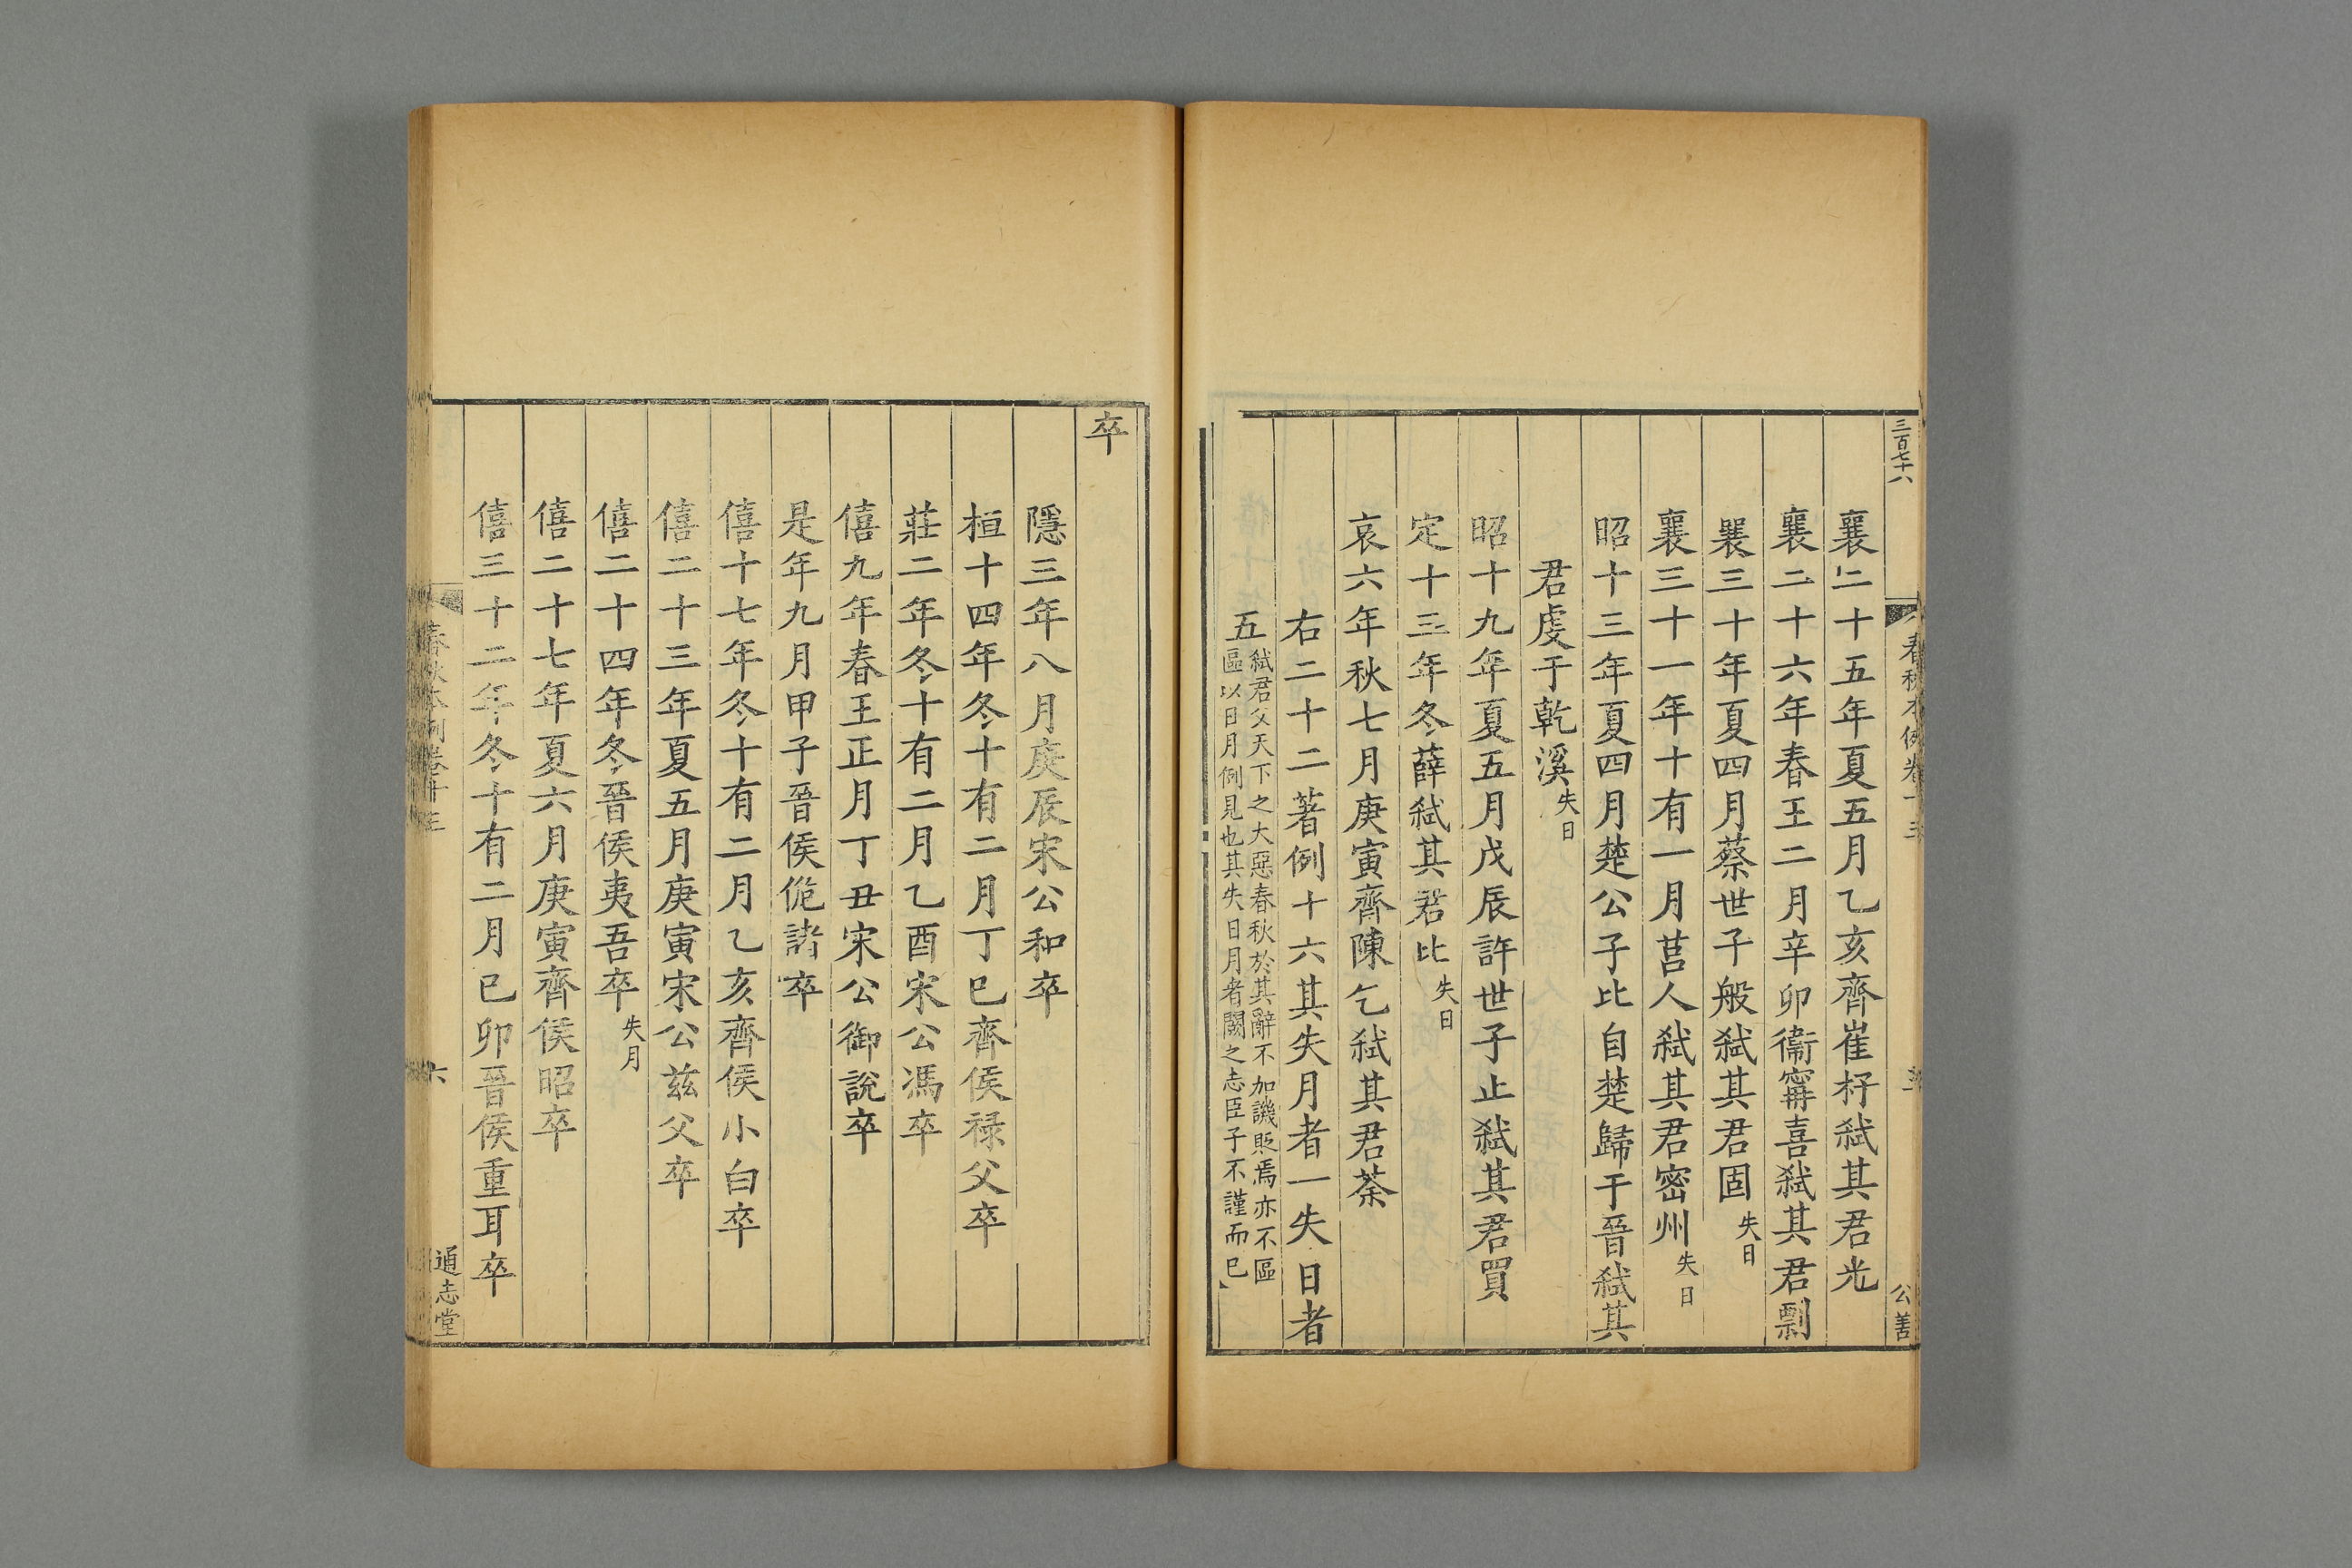 三百七十六
春秋本例卷十三
公善
襄二十五年夏五月乙亥齊崔杼弑其君光
襄二十六年春王二月辛卯衞甯喜弑其君剽
襄三十年夏四月蔡世子般弑其君固失日
襄三十一年十有一月莒人弑其君密州失日
昭十三年夏四月楚公子比自楚歸于晉弑其
君虔于乾溪失日
昭十九年夏五月戊辰許世子止弑其君買
定十三年冬薛弑其君比失日
哀六年秋七月庚寅齊陳乞弑其君荼
右二十二著例十六其失月者一失日者
五弑君父天下之大惡春秋於其辭不加譏貶焉亦不區
區以日月例見也其失日月者闕之志臣子不謹而已
卒
隱三年八月庚辰宋公和卒
桓十四年冬十有二月丁巳齊侯祿父卒
莊二年冬十有二月乙酉宋公馮卒
僖九年春王正月丁丑宋公御說卒
是年九月甲子晉侯佹諸卒
僖十七年冬十有二月乙亥齊侯小白卒
僖二十三年夏五月庚寅宋公兹父卒
僖二十四年冬晉侯夷吾卒失月
僖二十七年夏六月庚寅齊侯昭卒
僖三十二年冬十有二月已卯晉侯重耳卒
春秋本例卷十三
六
通志堂